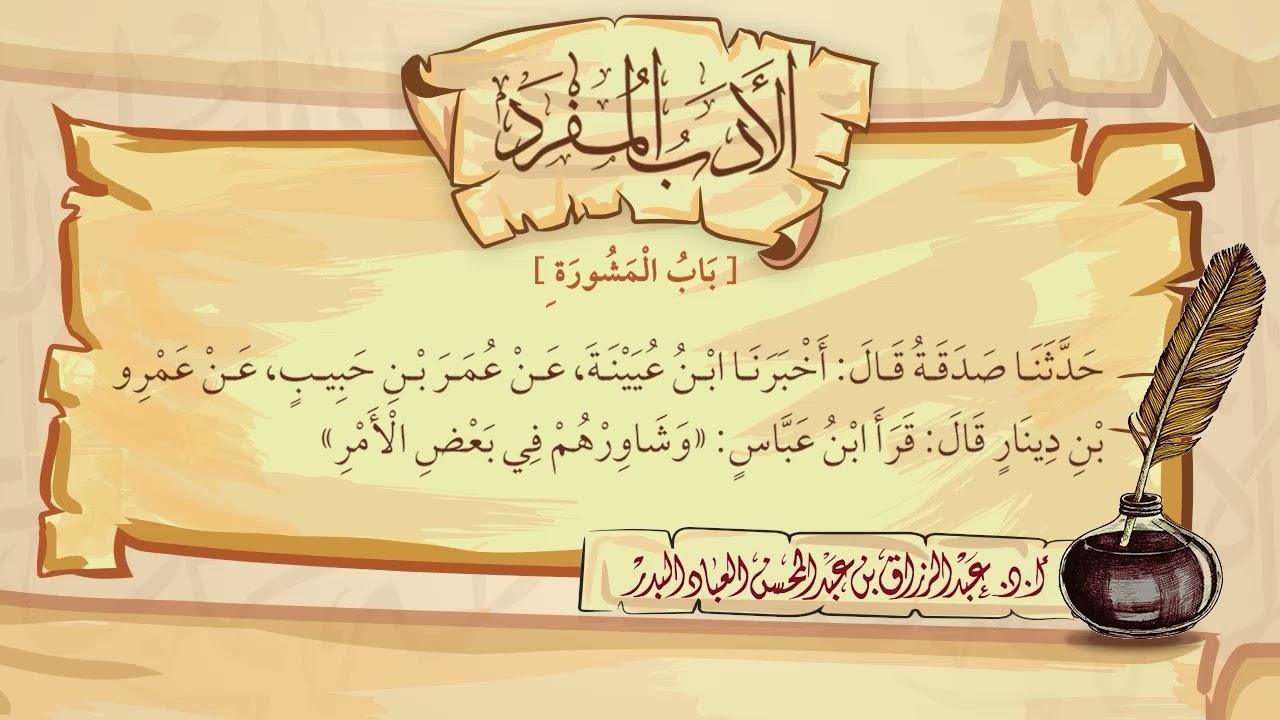 الأَدَبُ المُفْرَد
[ بَابُ الْمَشُورَةِ ]
حَدَّثَنَا صَدَقَةُ قَالَ: أَخْبَرَنَا ابْنُ عُيَيْنَةَ، عَنْ عُمَرَ بْنِ حَبِيبٍ، عَنْ عَمْرِو
بْنِ دِينَارٍ قَالَ: قَرَأَ ابْنُ عَبَّاسٍ: «وَشَاوِرْهُمْ فِي بَعْضِ الْأَمْرِ»
أ.د. عبد الرزاق بن عبد المحسن العباد البدر